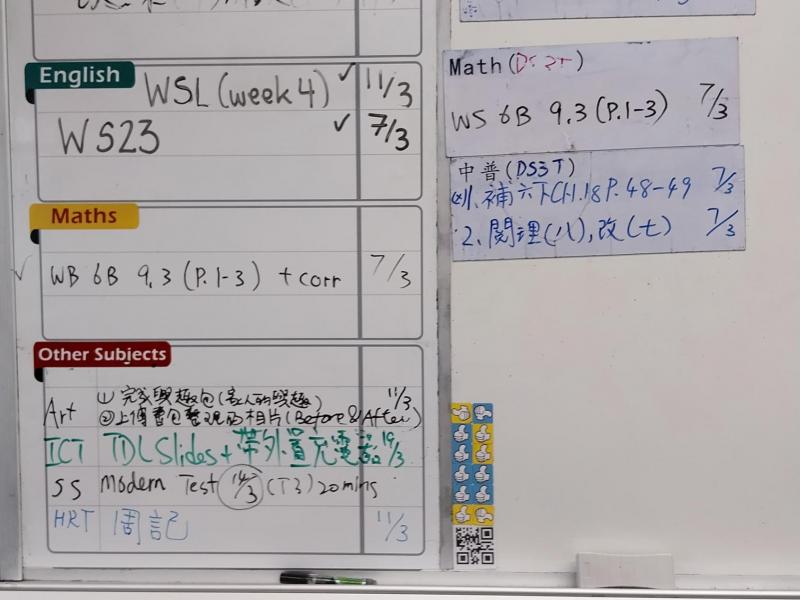 English
WSL (week 4) ✓ 11/3
WS23 ✓ 7/3
Maths
WB 6B 9.3 (P.1-3) + corr 7/3
Other Subjects
Art ① 完成興趣包(家人的興趣) 11/3
②上傳書包整理的相片(Before & After)
ICT TDL Slides + 帶外置充電器 19/3
SS Modern Test 14/3 (T3) 20 mins
HRT 周記 11/3
Math (DS 3T)
WS 6B 9.3 (P.1-3) 7/3
中普(DS3T)
1. 補六下Ch.18 P.48-49 7/3
2. 閱理(八),改(七) 7/3